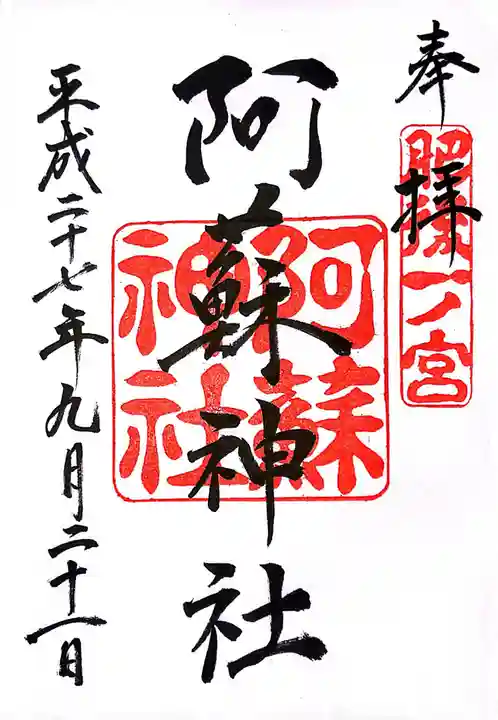 奉拝
肥後一ノ宮
阿蘇神社
阿蘇
神社
平成二十七年九月二十一日